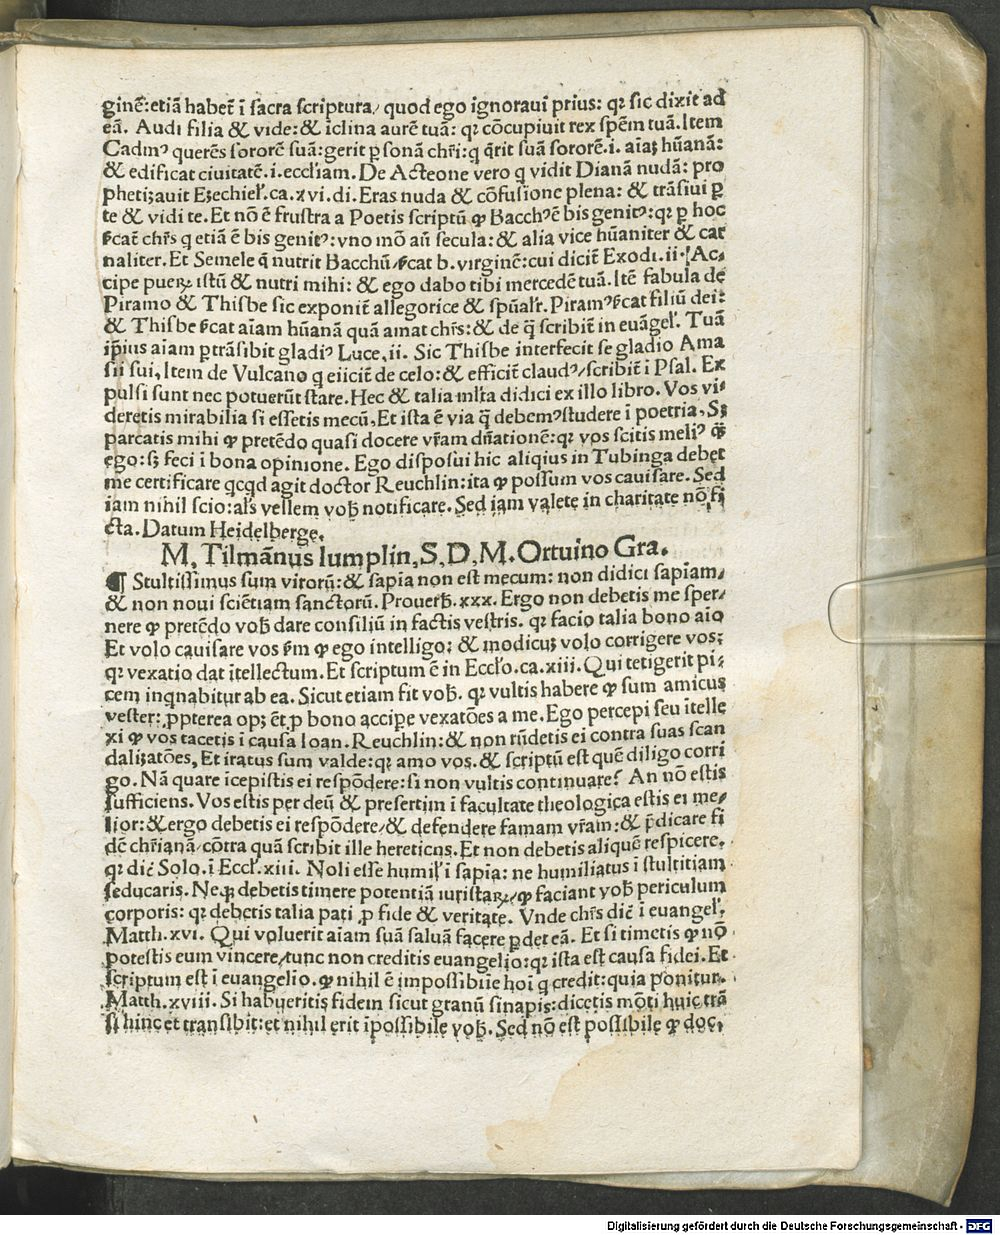 ginē:etiā habet̄ ī sacra scriptura/ quod ego ignoraui prius: qꝛ sic dixit ad
eā. Audi filia & vide:& īclina aurē tuā: qꝛ cōcupiuit rex spēm tuā.Item
Cadmꝰ querēs sororē suā:gerit ꝑsonā chr̄i:q q̄rit suā sororē.i. aīaꝫ hūanā:
& edificat ciuitatē.i.eccl'iam. De Acteone vero q vidit Dianā nudā: pro
phetiꝫauit Eꝫechiel'.ca.xvi.di. Eras nuda & cōfusione plena: & trāsiui ꝑ
te & vidi te. Et nō ē frustra a Poetis scriptū ꝙ Bacchꝰē bis genitꝰ:qꝛ ꝑ hoc
s̄cat̄ chr̄s q etiā ē bis genitꝰ:vno mō an̄ secula:& alia vice hūaniter & car
naliter. Et Semele q̄ nutrit Bacchū/s̄cat b.virginē:cui dicit̄ Exodi.ii. Ac⸗
cipe pueꝝ istū & nutri mihi: & ego dabo tibi mercedē tuā. Itē fabula de
Piramo & Thisbe sic exponit̄ allegorice & sp̄ual'r. Piramꝰs̄cat filiū dei:
& Thisbe s̄cat aīam hūanā quā amat chr̄s:& de q̄ scribit̄ in euāgel'. Tuā
ip̄ius aīam ꝑtrāsibit gladiꝰ Luce.ii. Sic Thisbe interfecit se gladio Ama
sii sui. Item de Vulcano q eiicit̄ de celo:& efficit̄ claudꝰ/scribit̄ ī Psal. Ex
pulsi sunt nec potuerūt stare. Hec & talia ml'ta didici ex illo libro. Vos vi⸗
deretis mirabilia si essetis mecū. Et ista ē via q̄ debemꝰstudere ī poetria. Sꝫ
parcatis mihi ꝙ pretēdo quasi docere vr̄am dn̄ationē:qꝛ vos scitis meliꝰ q̄ꝫ
ego:sꝫ feci ī bona opinione. Ego disposui hic aliqius in Tubinga debet
me certificare qcqd agit doctor Reuchlin:ita ꝙ possum vos cauisare. Sed
iam nihil scio:al's vellem vob̄ notificare. Sed iam valete in charitate nō fi
cta. Datum Heidelberge.
M. Tilmānus lumplin. S. D. M. Ortuino Gra.
¶ Stultissimus sum virorū:& sapīa non est mecum: non didici sapīam/
& non noui sciētiam sanctorū. Prouerb̄.xxx. Ergo non debetis me sper⸗
nere ꝙ pretēdo vob̄ dare consiliū in factis vestris. qꝛ facio talia bono aīo
Et volo cauisare vos s̄m ꝙ ego intelligo: & modicuꝫ volo corrigere vos:
qꝛ vexatio dat ītellectum. Et scriptum ē in Eccl'o.ca.xiii. Qui tetigerit pi⸗
cem inqnabitur ab ea. Sicut etiam fit vob̄. qꝛ vultis habere ꝙ sum amicus
vester: ꝓpterea opꝫ ēt ꝓ bono accipe vexatōes a me. Ego percepi seu ītelle
xi ꝙ vos tacetis ī causa Ioan. Reuchlin:& non rn̄detis ei contra suas scan
daliꝫatōes. Et iratus sum valde:qꝛ amo vos. & scriptū est quē diligo corri
go. Nā quare īcepistis ei respōdere:si non vultis continuare? An nō estis
sufficiens. Vos estis per deū & presertim ī facultate theologica estis ei me⸗
lior:&ergo debetis ei respōdere/& defendere famam vr̄am:& p̄dicare fi
dē chr̄ianā/cōtra quā scribit ille hereticus. Et non debetis aliquē respicere.
qꝛ dic̄ Solo. ī Eccl'.xiii. Noli esse humil' ī sapīa: ne humiliatus ī stultitiam
seducaris. Neqꝫ debetis timere potentiā iuristaꝝ/ꝙ faciant vob̄ periculum
corporis: qꝛ debetis talia pati ꝓ fide & veritate. Vnde chr̄s dic̄ ī euangel'.
Matth.xvi. Qui voluerit aīam suā saluā facere ꝑdet eā. Et si timetis ꝙ nō
potestis eum vincere/tunc non creditis euangelio:qꝛ ista est causa fidei. Et
scriptum est ī euangelio. ꝙ nihil ē impossibile hoī q credit:quia ponitur.
Matth.xviii. Si habueritis fidem sicut granū sinapis:dicetis mōti huic trā
si hinc et transibit:et nihil erit īpossibile vob̄. Sed nō est possibile ꝙ doc.
Digitalisierung gefördert durch die Deutsche Forschungsgemeinschaft - DFG